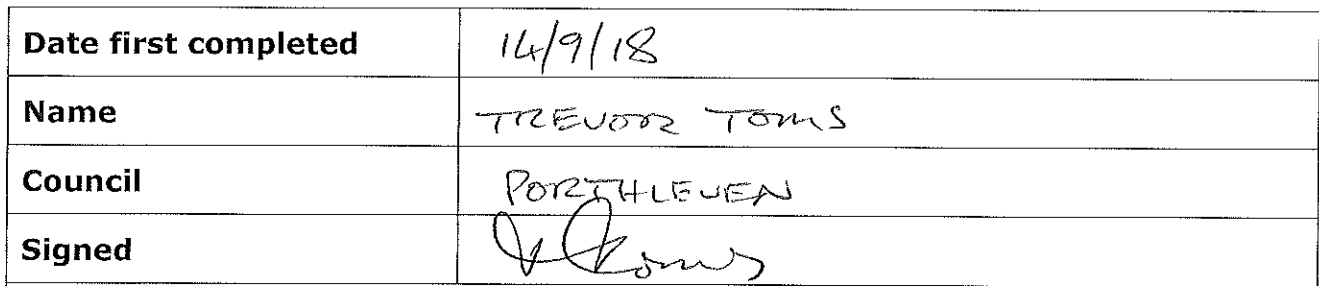 Date first completed 14/9/18
Name TREVOR TOMS
Council PORTHLEVEN
Signed